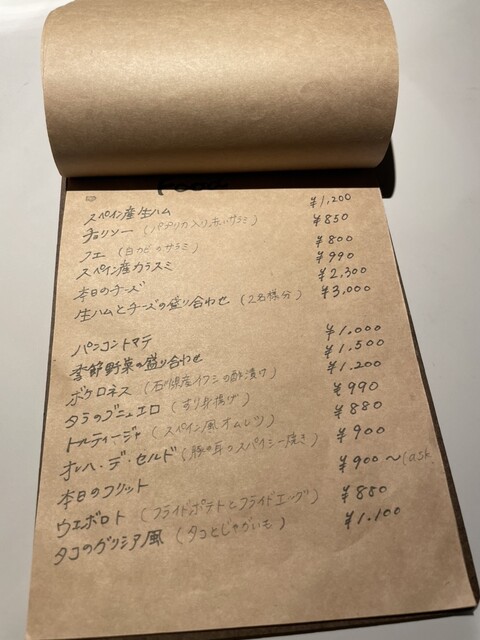 スペイン産生ハム ¥1,200
チョリソー（パプリカ入り赤いサラミ） ¥850
フエ（白カビのサラミ） ¥800
スペイン産カラスミ ¥990
本日のチーズ ¥2,300
生ハムとチーズの盛り合わせ（2名様分） ¥3,000
パンコントマテ ¥1,000
季節野菜の盛り合わせ ¥1,500
ボケロネス（石川県産イワシの酢漬け） ¥1,200
タラのブニュエロ（すり身揚げ） ¥990
トルティージャ（スペイン風オムレツ） ¥880
オレハ・デ・セルド（豚の耳のスパイシー焼き） ¥900
本日のフリット ¥900〜(ask
ウエボロト（フライドポテトとフライドエッグ） ¥880
タコのガリシア風（タコとじゃがいも） ¥1,100